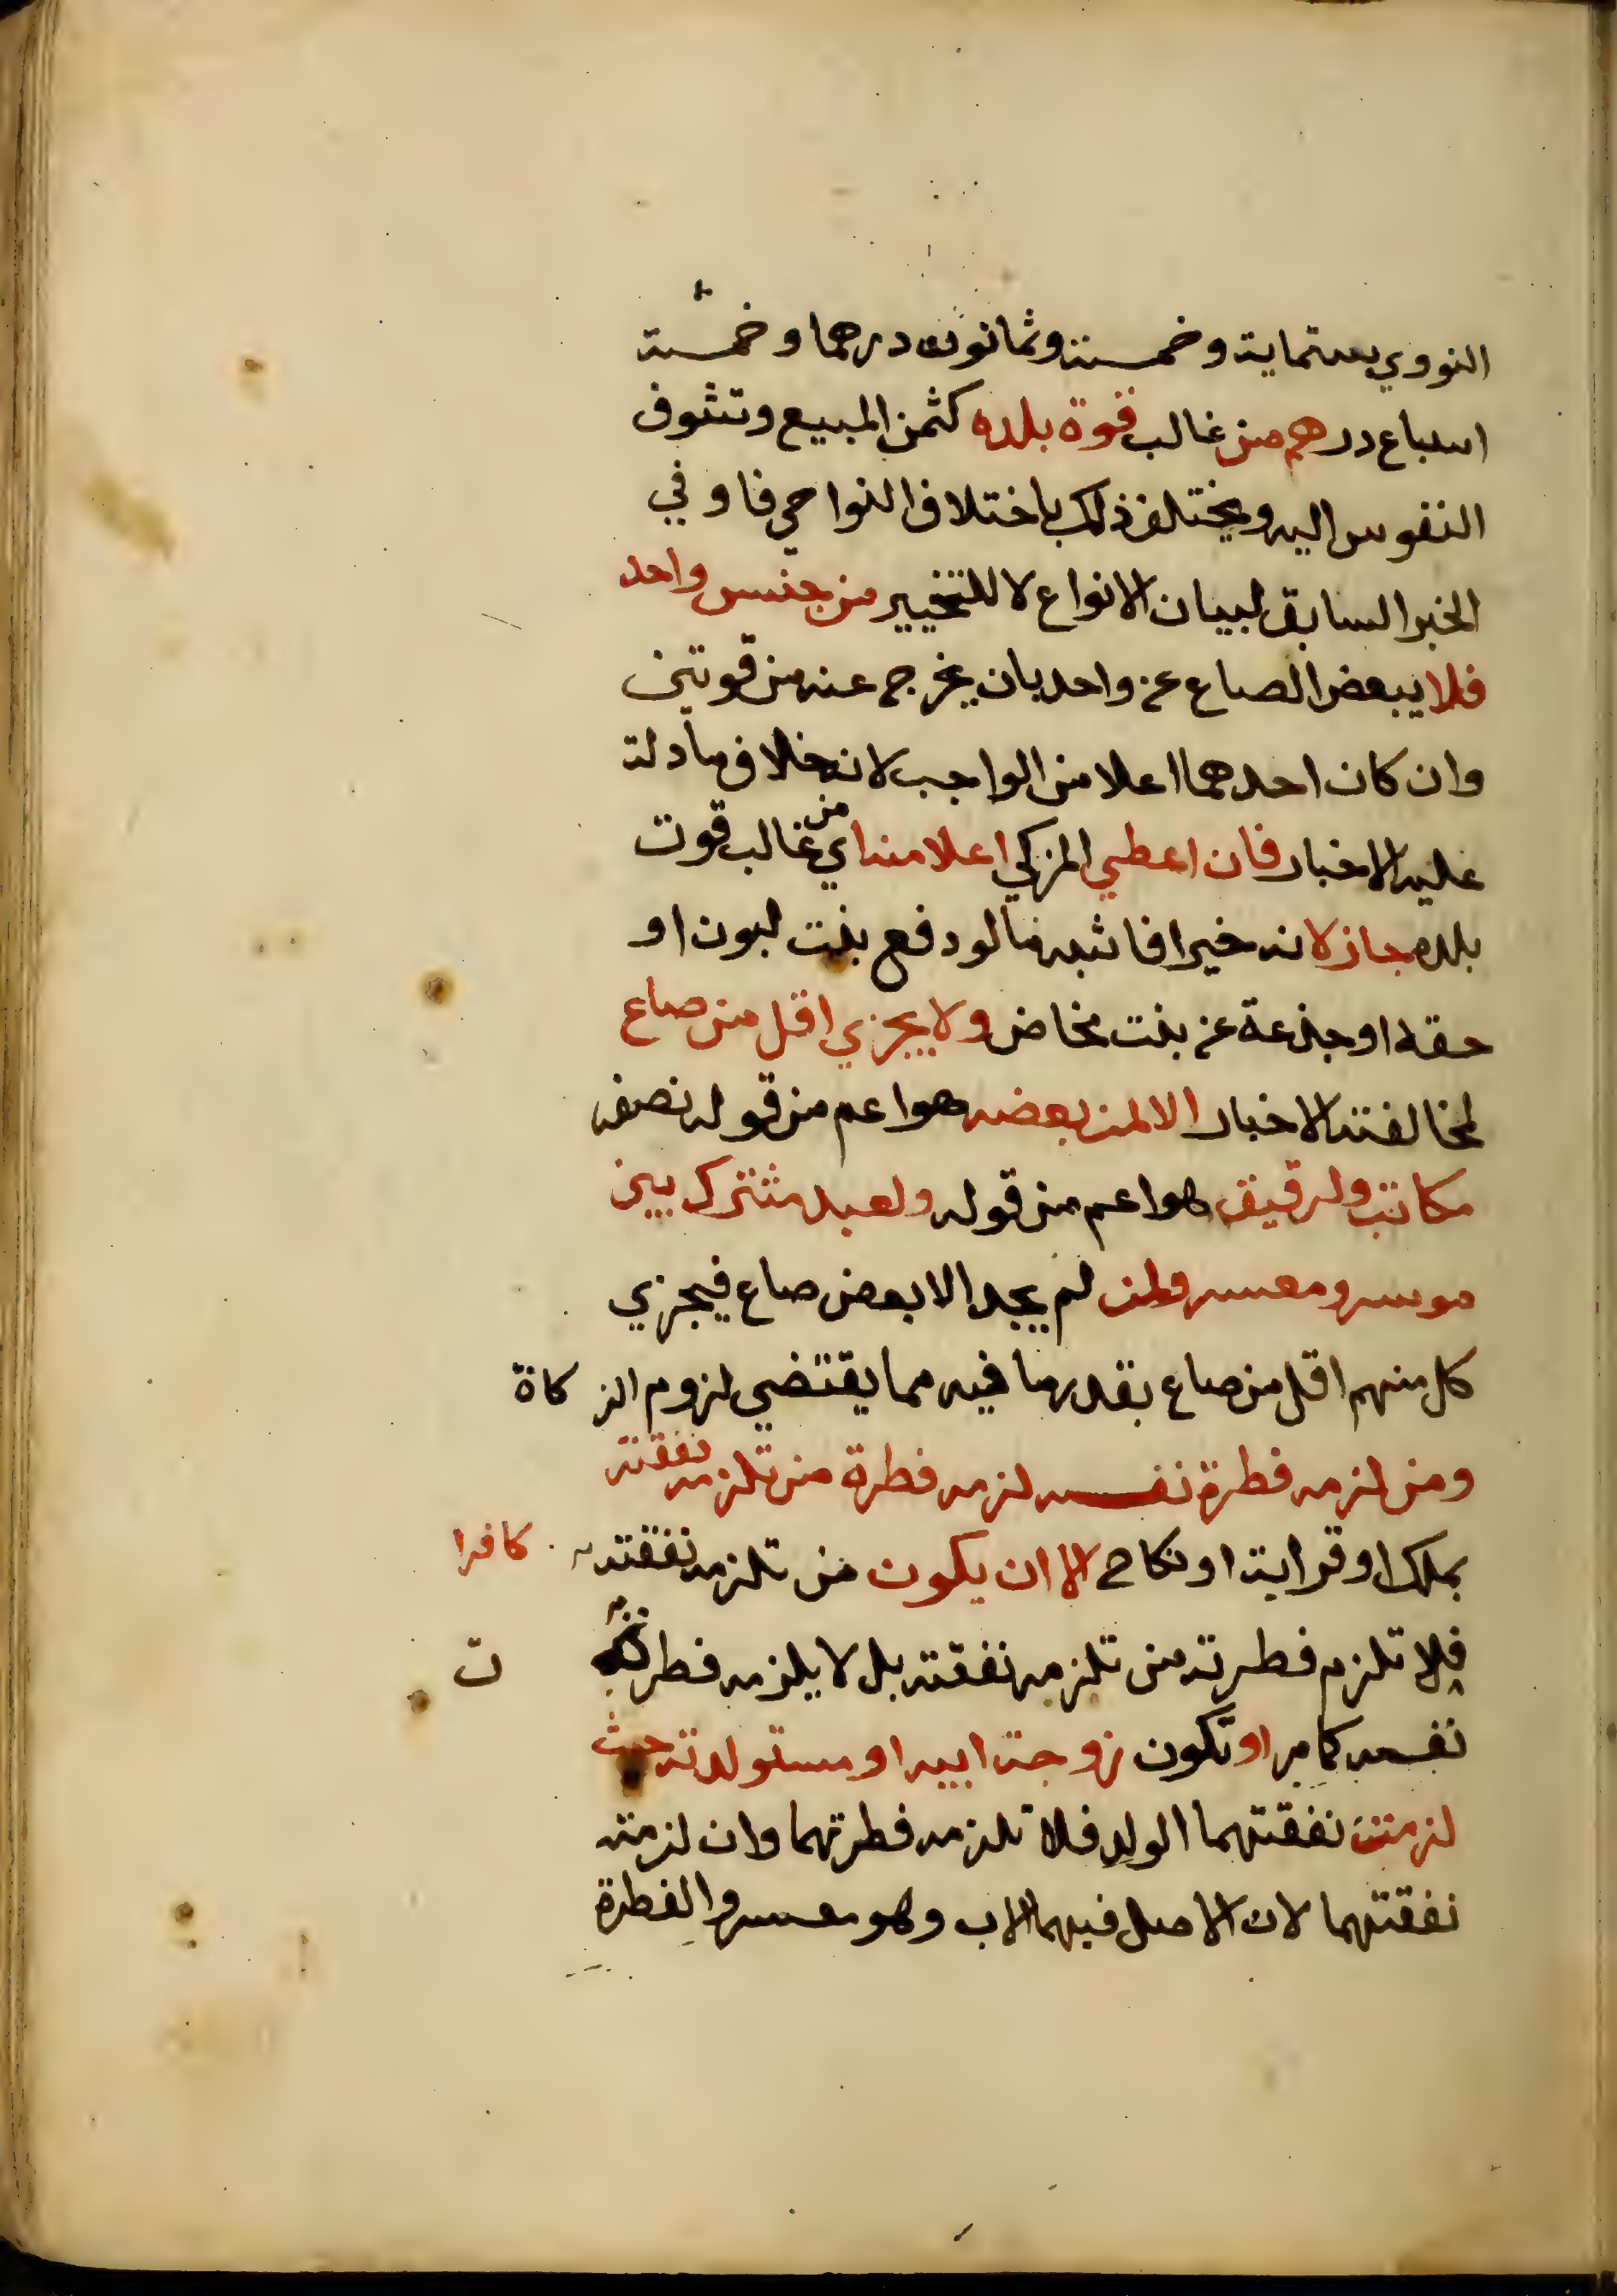 النووي بستماية وخمسة وثمانون درهما وخمسة
اسباع درهم من غالب قوة بلده كثمن المبيع وتشوف
النفوس اليه ويختلف ذلك باختلاف النواحي فاو في
الخبر السابق لبيان الانواع لا للتخيير من جنس واحد
فلا يبعض الصاع عن واحد بان يخرج عنه من قوتين
وان كان احدهما اعلا من الواجب لانه خلاف ما دلة
عليه الاخبار فان اعطي المزكي اعلا منه اي من غالب قوت
بلده جاز لانه خيرا فاشبه ما لو دفع بنت لبون او
حقه او جذعة عن بنت مخاض ولا يجزي اقل من صاع
لمخالفته الاخبار الا لمن بعضه هو اعم من قوله نصفه
مكاتب ولرقيق هو اعم من قوله ولعبد مشترك بين
موسر ومعسر ولمن لم يجد الا بعض صاع فيجزي
كل منهم اقل من صاع بقدر ما فيه مما يقتضي لزوم الز كاة
ومن لزمه فطرة نفسه لزمه فطرة من تلزمه نفقته
بملك او قرابة او نكاح الا ان يكون من تلزمه نفقته كافرا
فلا تلزم فطرته من تلزمه نفقته بل لا يلزمه فطرة ت
نفسه كما مر او تكون زوجة ابيه او مستولدته حيث
لزمت نفقتهما الولد فلا تلزمه فطرتهما وان لزمته
نفقتهما لان الاصل فيهما الاب وهو معسر والفطرة